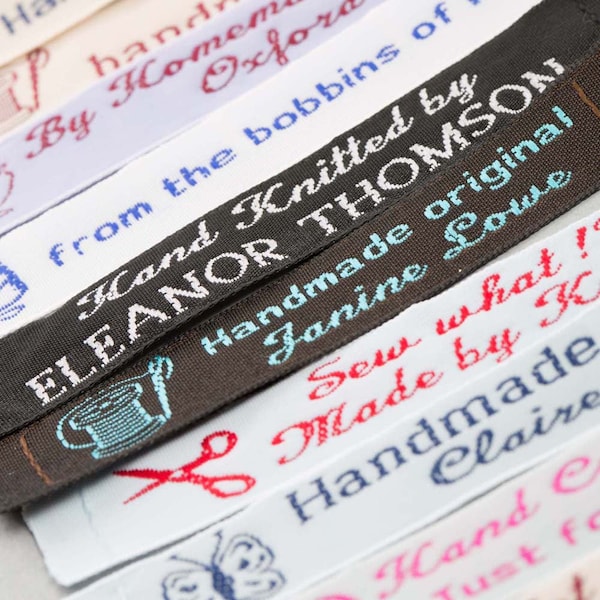 Hand
handm
By Homema
Oxford
from the bobbins of
Hand Knitted by
ELEANOR THOMSON
Handmade original
Janine Lowe
Sew what !?
Made by K
Handmade
Claire
Hand C
Just fo
hand